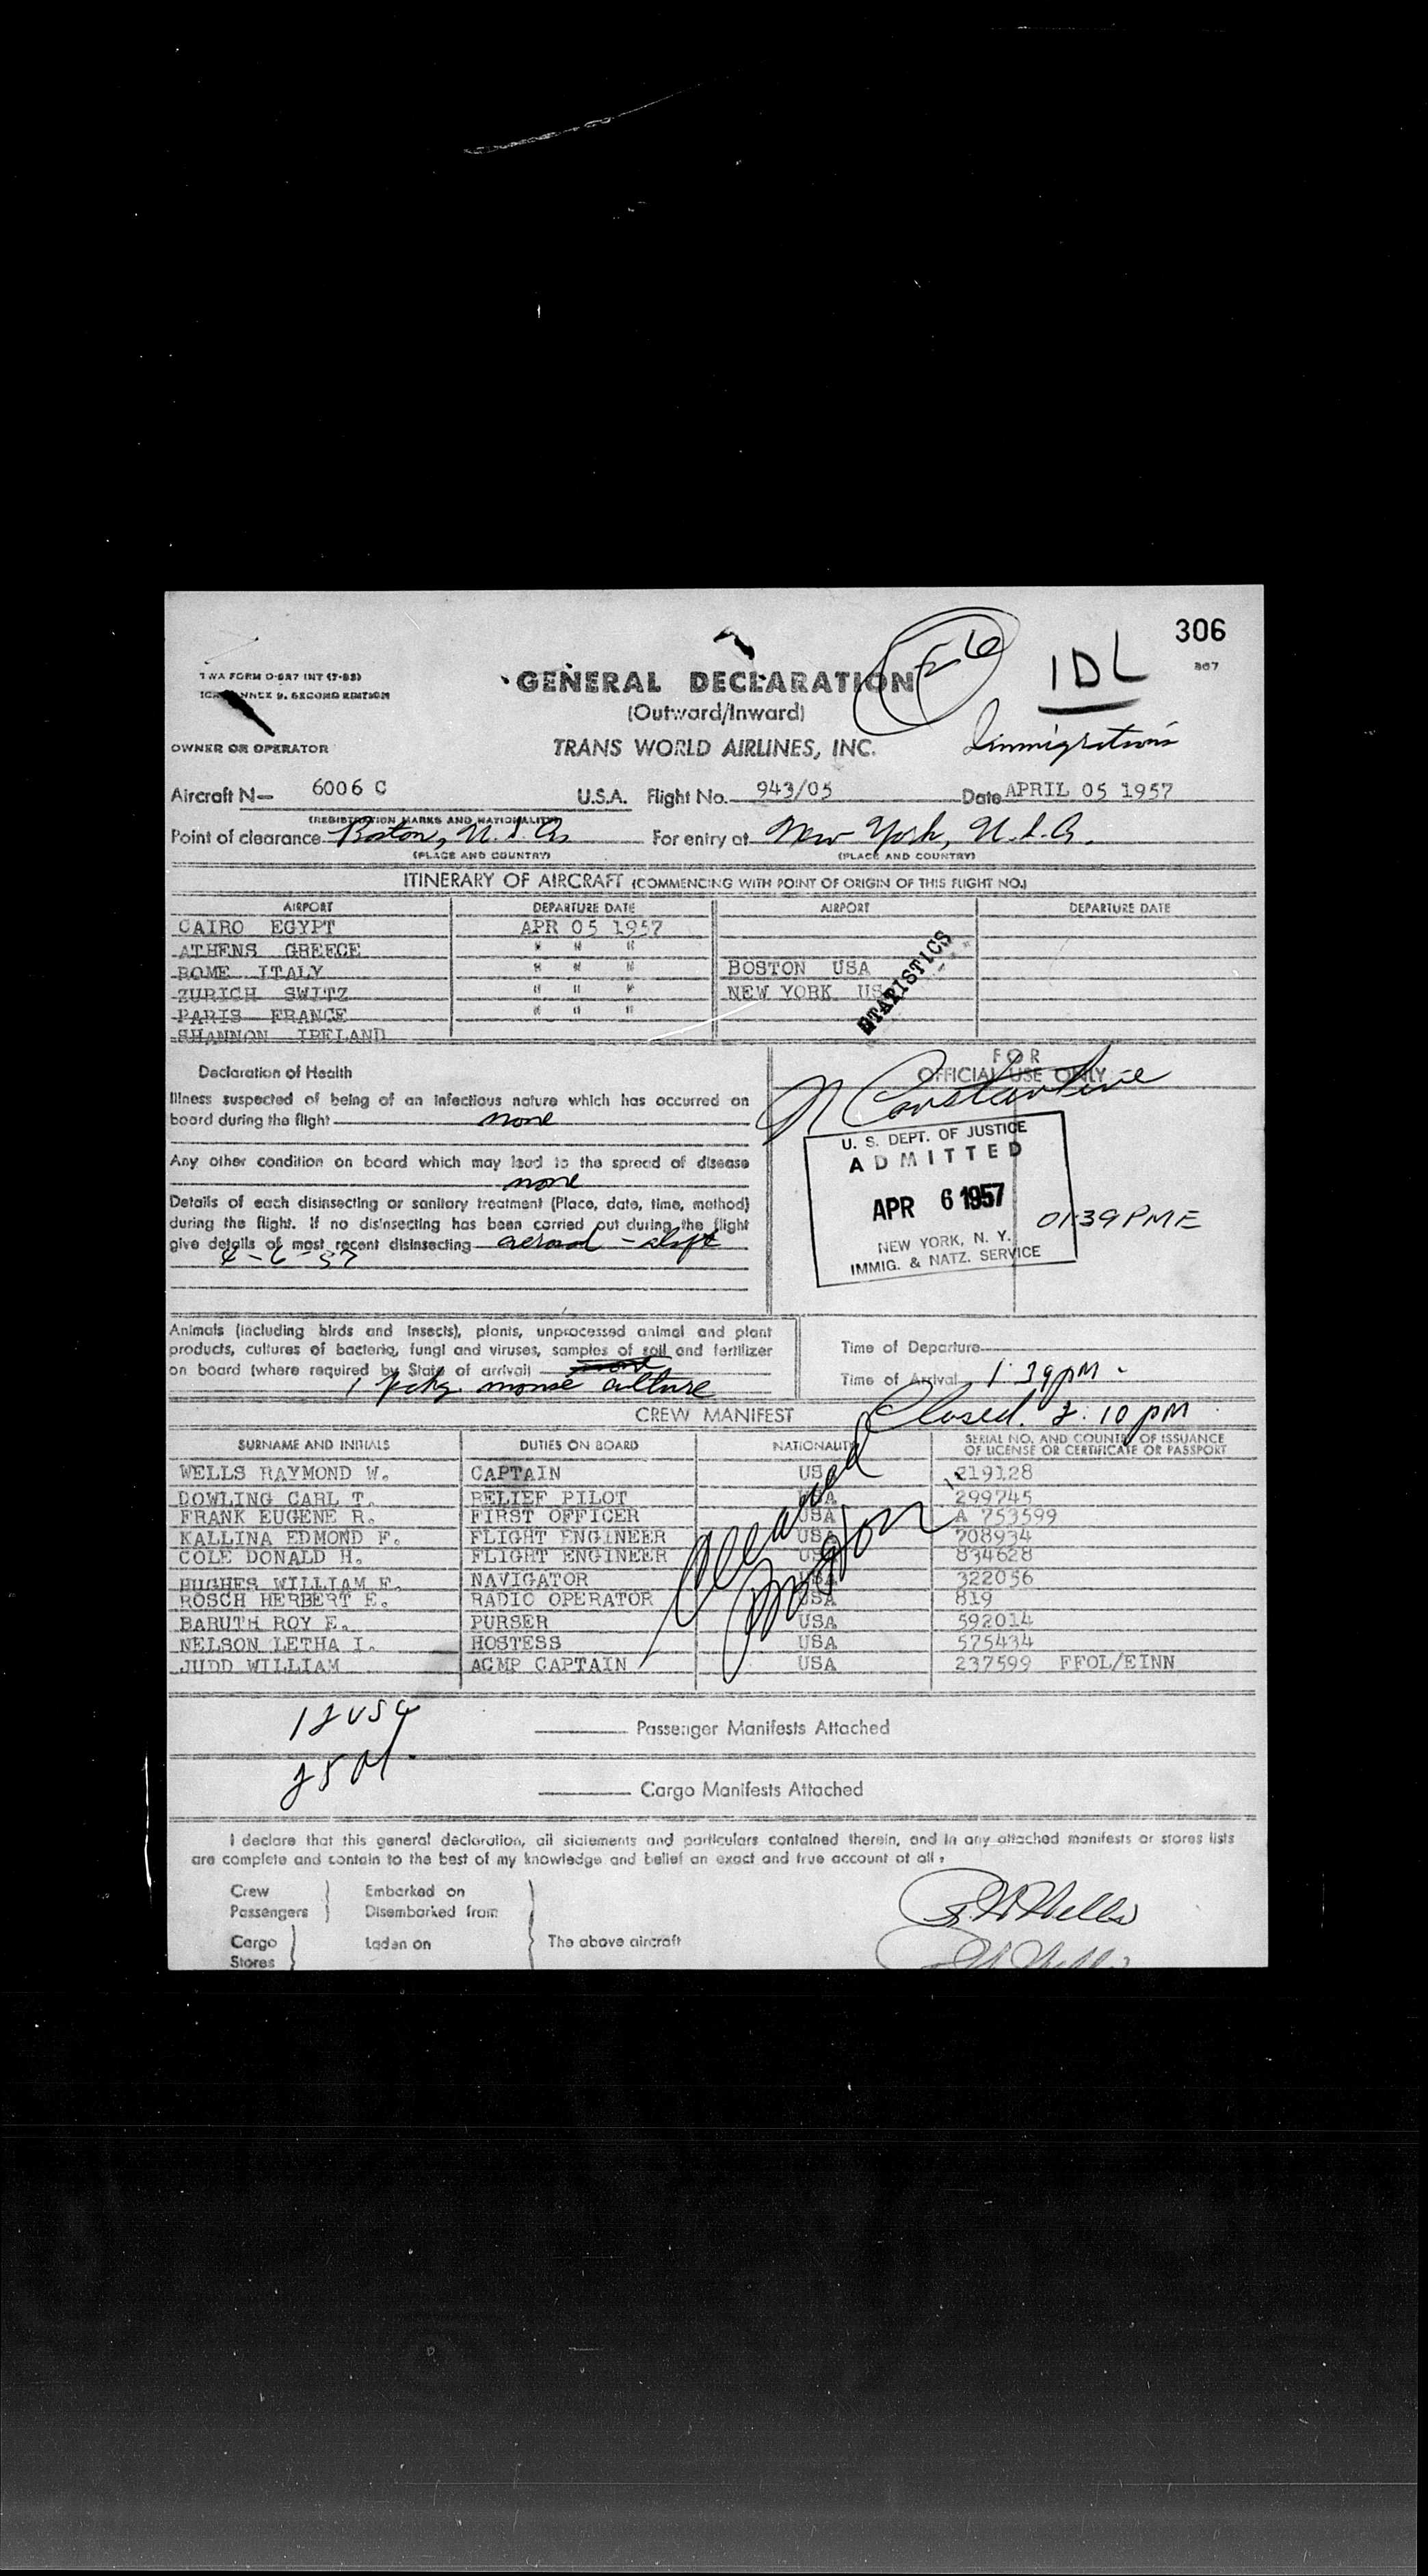 306
367
IDL
TWA FORM O-587 INT (7-53)
ANNEX 9, SECOND EDITION
GENERAL DECLARATION
(Outward/Inward)
Immigration
OWNER OR OPERATOR
TRANS WORLD AIRLINES, INC.
Aircraft N— 6006 C U.S.A. Flight No. 943/05 Date APRIL 05 1957
(REGISTRATION MARKS AND NATIONALITY)
Point of clearance Boston, U.S.A. For entry at New York, U.S.A.
(PLACE AND COUNTRY) (PLACE AND COUNTRY)
ITINERARY OF AIRCRAFT (COMMENCING WITH POINT OF ORIGIN OF THIS FLIGHT NO.)
AIRPORT DEPARTURE DATE AIRPORT DEPARTURE DATE
CAIRO EGYPT APR 05 1957
ATHENS GREECE " " "
ROME ITALY " " " BOSTON USA
ZURICH SWITZ " " " NEW YORK US
PARIS FRANCE " " "
SHANNON IRELAND
STATISTICS
FOR
OFFICIAL USE ONLY
N Constantine
Declaration of Health
Illness suspected of being of an infectious nature which has occurred on
board during the flight none
Any other condition on board which may lead to the spread of disease
none
Details of each disinsecting or sanitary treatment (Place, date, time, method)
during the flight. If no disinsecting has been carried out during the flight
give details of most recent disinsecting aerosol -
4-6-57
U. S. DEPT. OF JUSTICE
ADMITTED
APR 6 1957
NEW YORK, N. Y.
IMMIG. & NATZ. SERVICE
0139PME
Animals (including birds and insects), plants, unprocessed animal and plant
products, cultures of bacteria, fungi and viruses, samples of soil and fertilizer
on board (where required by State of arrival) none
1 pckg. mouse culture
Time of Departure
Time of Arrival 1:39pm -
Closed. 2:10 pm
CREW MANIFEST
SURNAME AND INITIALS DUTIES ON BOARD NATIONALITY SERIAL NO. AND COUNTRY OF ISSUANCE
OF LICENSE OR CERTIFICATE OR PASSPORT
WELLS RAYMOND W. CAPTAIN US 219128
DOWLING CARL T. RELIEF PILOT USA 299745
FRANK EUGENE R. FIRST OFFICER USA A 753599
KALLINA EDMOND F. FLIGHT ENGINEER USA 708934
COLE DONALD H. FLIGHT ENGINEER USA 834628
HUGHES WILLIAM F. NAVIGATOR USA 322056
ROSCH HERBERT E. RADIO OPERATOR USA 819
BARUTH ROY E. PURSER USA 592014
NELSON LETHA I. HOSTESS USA 575434
JUDD WILLIAM ACMP CAPTAIN USA 237599 FFOL/EINN
Cleared
Boston
12 USC
25 A
Passenger Manifests Attached
Cargo Manifests Attached
I declare that this general declaration, all statements and particulars contained therein, and in any attached manifests or stores lists
are complete and contain to the best of my knowledge and belief an exact and true account of all:
Crew Embarked on
Passengers Disembarked from
Cargo Laden on The above aircraft
Stores
R.W. Wells